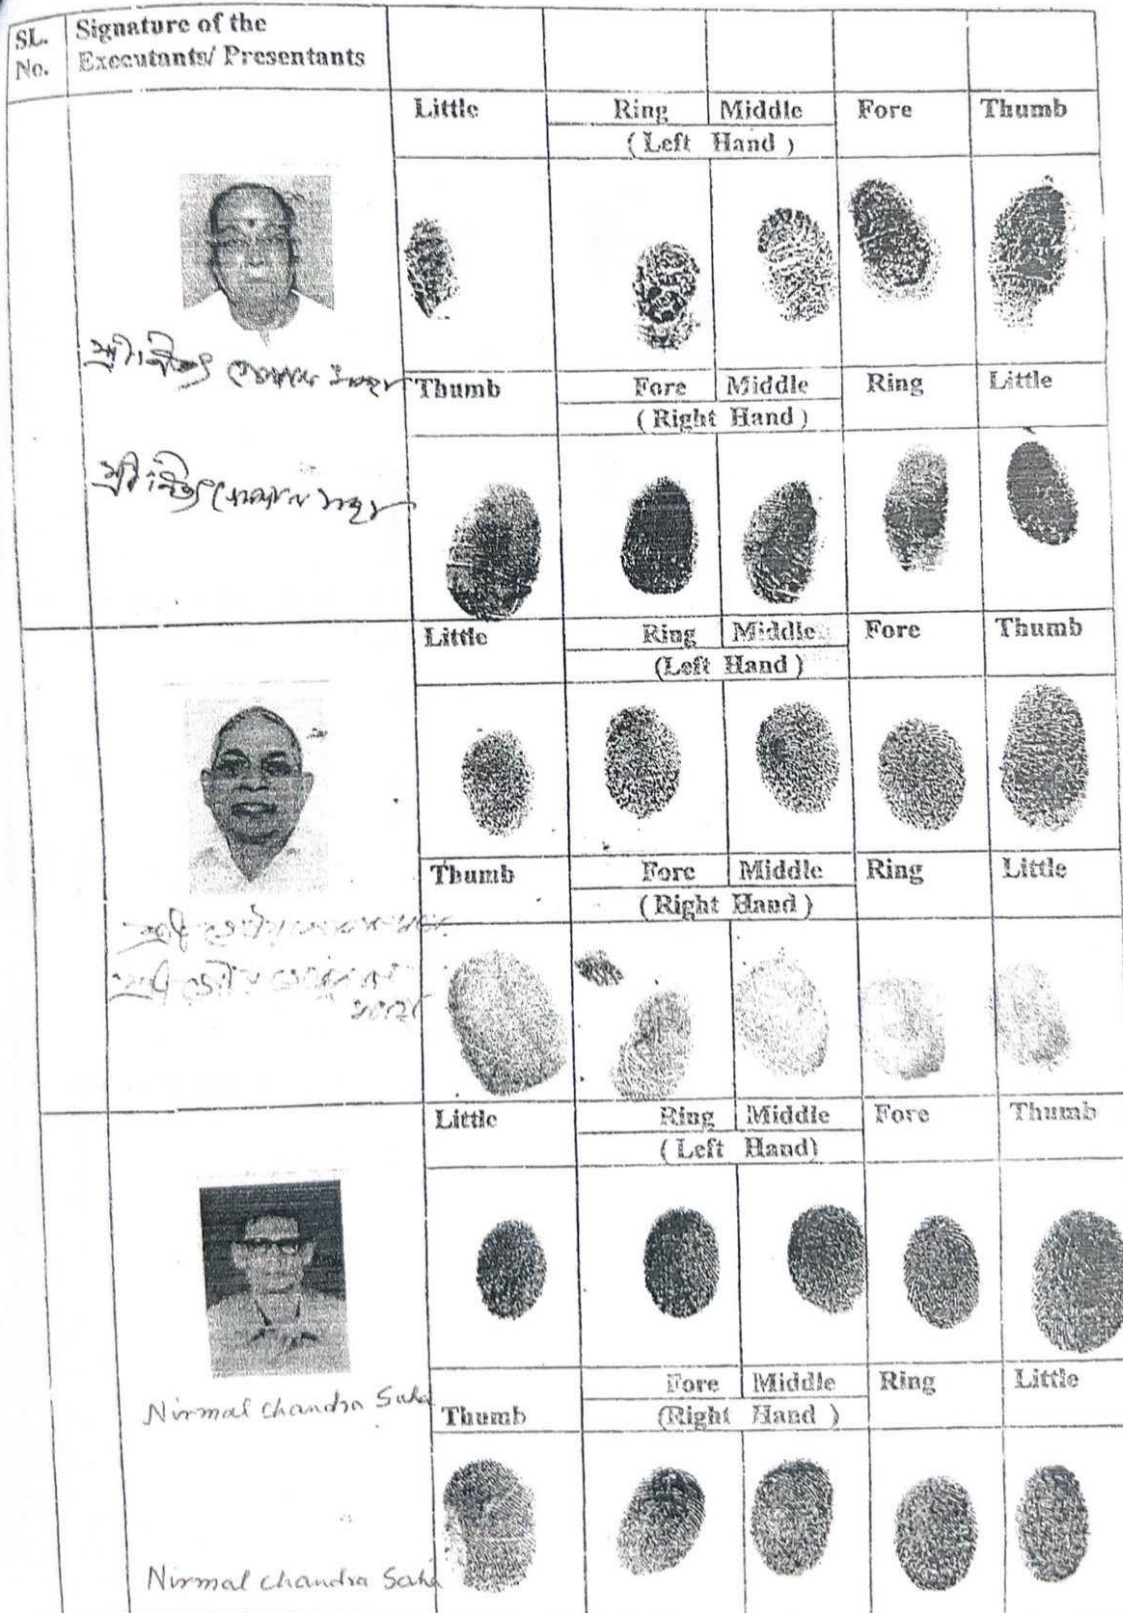 SL. No.
Signature of the
Executants/ Presentants
Little Ring Middle Fore Thumb
( Left Hand )
Thumb Fore Middle Ring Little
( Right Hand )
Little Ring Middle Fore Thumb
(Left Hand )
Thumb Fore Middle Ring Little
( Right Hand )
Little Ring Middle Fore Thumb
( Left Hand)
Nirmal Chandra Saha
Thumb Fore Middle Ring Little
(Right Hand )
Nirmal Chandra Saha